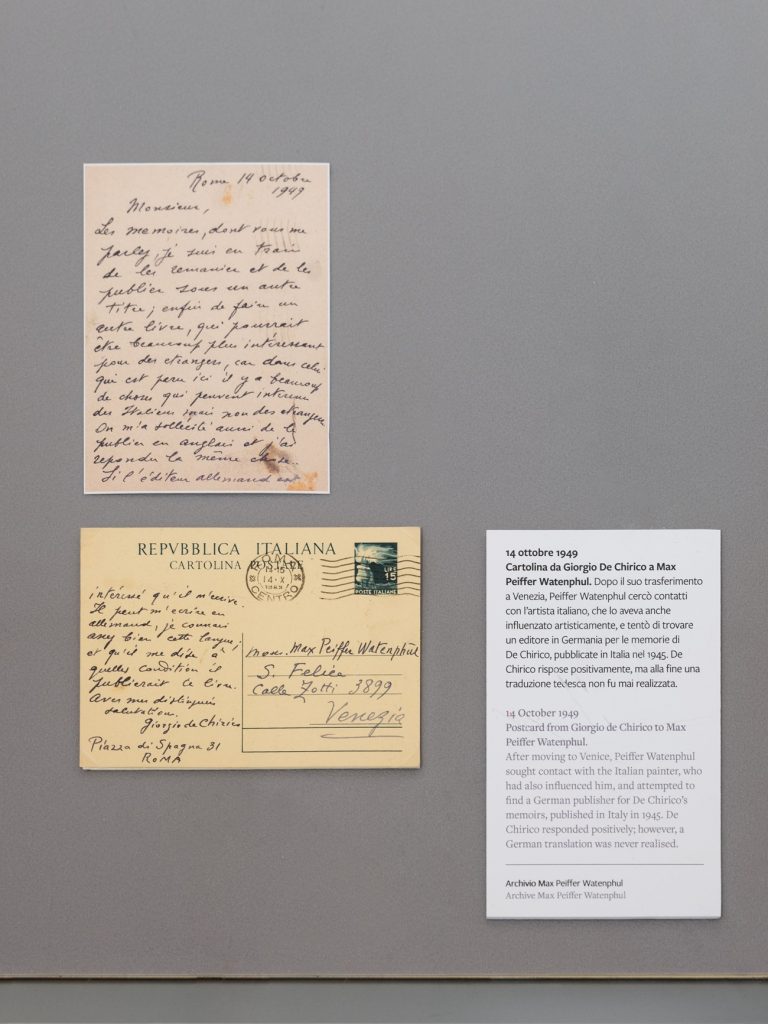 Rome 14 octobre
1949
Monsieur,
Les memoires, dont vous me
parlez, je suis en train
de les remanier et de les
publier sous un autre
titre; enfin de faire un
autre livre, qui pourrait
être beaucoup plus intéressant
pour des etrangers, car dans celui
qui est paru ici il y a beaucoup
de choses qui peuvent interesser
des Italiens mais non des etrangers
On m'a sollecité aussi de le
publier en anglais et j'ai
repondu la même chose.
Si l'éditeur allemand est
REPVBBLICA ITALIANA
CARTOLINA POSTALE
ROMA
14·X
CENTRO
LIRE
15
POSTE ITALIANE
intéressé qu'il m'écrive.
Il peut m'ecrire en
allemand, je connais
assez bien cette langue;
et qu'il me dise à
quelles condition il
publierait ce livre.
Avec mes distingués
salutations.
Giorgio de Chirico
Piazza di Spagna 31
ROMA
Max Peiffer Watenphul
S. Felice
Calle Zotti 3899
Venezia
14 ottobre 1949
Cartolina da Giorgio De Chirico a Max
Peiffer Watenphul. Dopo il suo trasferimento
a Venezia, Peiffer Watenphul cercò contatti
con l'artista italiano, che lo aveva anche
influenzato artisticamente, e tentò di trovare
un editore in Germania per le memorie di
De Chirico, pubblicate in Italia nel 1945. De
Chirico rispose positivamente, ma alla fine una
traduzione tedesca non fu mai realizzata.
14 October 1949
Postcard from Giorgio de Chirico to Max
Peiffer Watenphul.
After moving to Venice, Peiffer Watenphul
sought contact with the Italian painter, who
had also influenced him, and attempted to
find a German publisher for De Chirico's
memoirs, published in Italy in 1945. De
Chirico responded positively; however, a
German translation was never realised.
Archivio Max Peiffer Watenphul
Archive Max Peiffer Watenphul